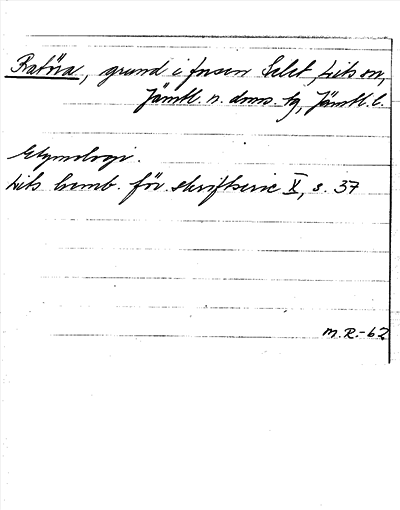 Ratöra, grund i forsen Selet, Lits sn,
Jämtl. n. doms. tg, Jämtl. l.
Etymologi.
Lits hemb. för. skriftserie X, s. 37
M.R.-62